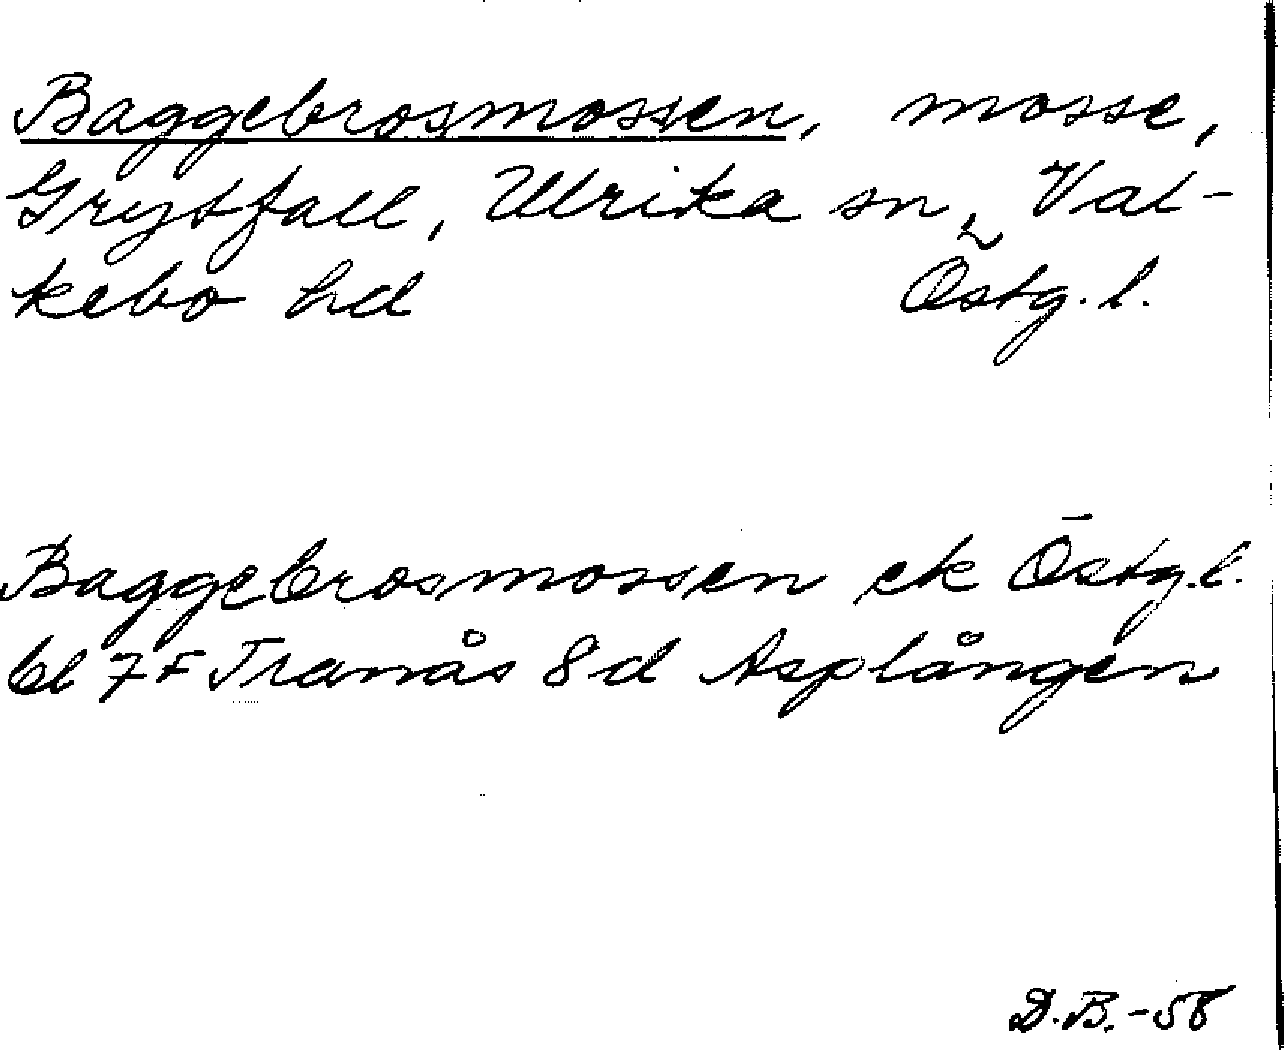 Baggebrosmossen, mosse,
Grytfall, Ulrika sn, Val-
kebo hd Östg. l.
Baggebrosmossen ek Östg. l.
bl 7F Tranås 8d Asplången
D.B. -58